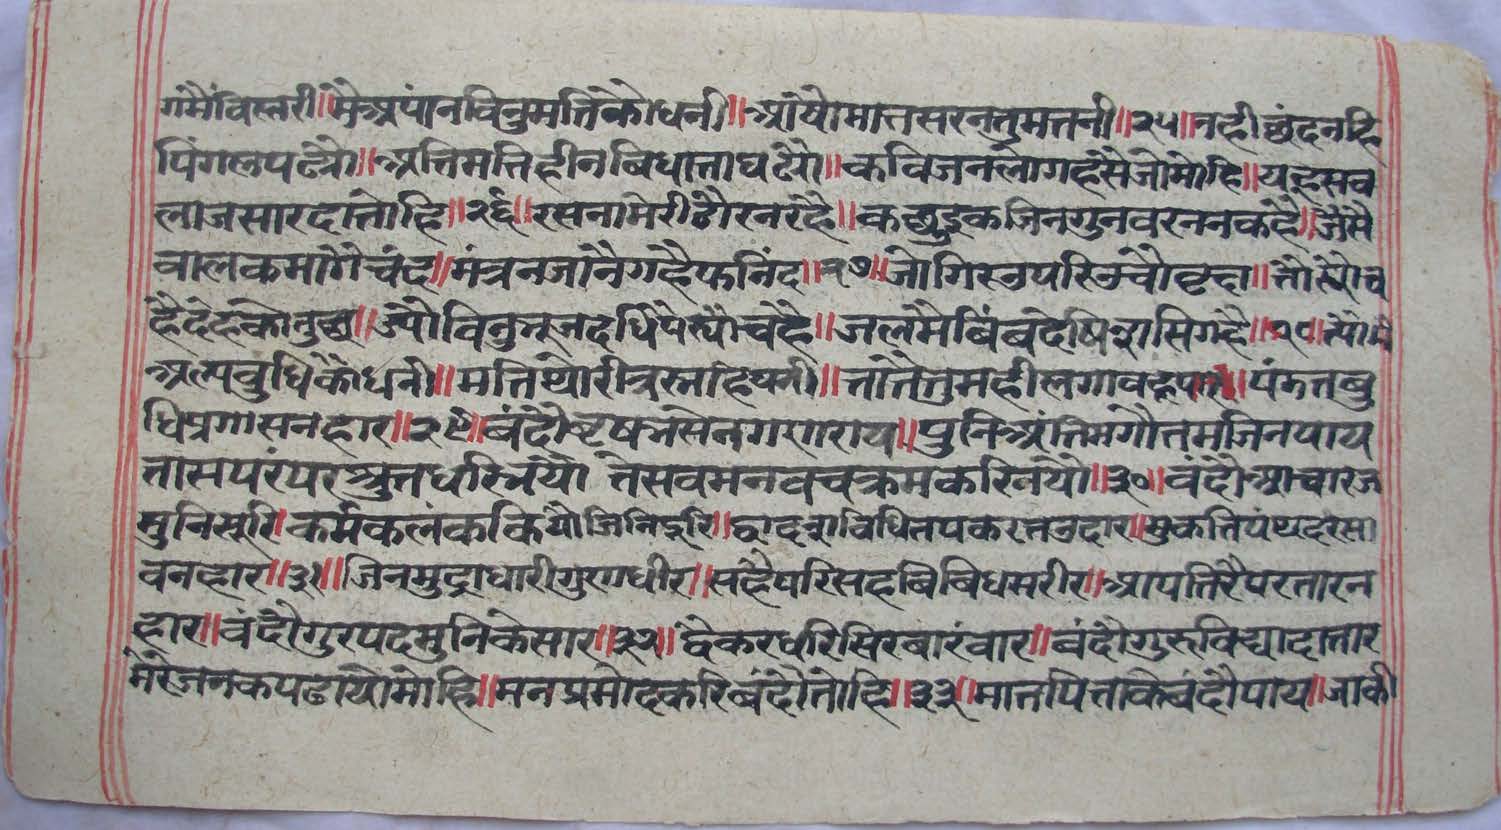 गमैंविस्तरी॥मैअपांनविनुमतिकोधनी॥आयौमातसरनतुमतनी॥२५॥नहीछंदनहि
पिंगलपढ्यौ॥अतिमतिहीनबिधाताघढ्यौ॥कविजनलोगहंसैजोमोहि॥यहसव
लाजसारदातोहि॥२६॥रसनामेरीठौरनरहै॥कछुइकजिनगुनवरननकहै॥जैसे
वालकमांगैचंद॥मंत्रनजांनैगहैफनिंद॥२७॥जोगिरऊपरिऊचौवृछ॥
देहकोतुछ॥ज्यौविनुभूजदधिपैरयौचहै॥जलमैबिंबदेषिशसिगहै॥२८॥त्यौमै
अल्पबुधिकौधनी॥मतिथोरी तातैतुमहीलगावहुपार॥पंडितबु
धिप्रगासनहार॥२९॥बंदौवृषभसेनगणराय॥पुनिअंतिमगौतमजिनपाय
तासपरंपरश्रुतधरि तेसवमनवचक्रमकरिनयो॥३०॥वंदौआचारज
मुनिसूरि॥कर्मकलंककियौजिनिदूरि॥द्वादशविधितपकरतउदार॥मुकतिपंथदरसा
वनहार॥३१॥जिनमुद्राधारीगुणधीर॥सहैपरिसहबिबिधसरीर॥आपतिरैपरतारन
हार॥वंदौगुरपदमुनिकेसार॥३२॥द्वैकरधरिसिरबारंवार॥बंदौगुरुविद्यादातार
मेरेजनकपढायौमोहि॥मनप्रमोदकरिबंदौतोहि॥३३॥मातपिताकेवंदौपाय॥जाकी